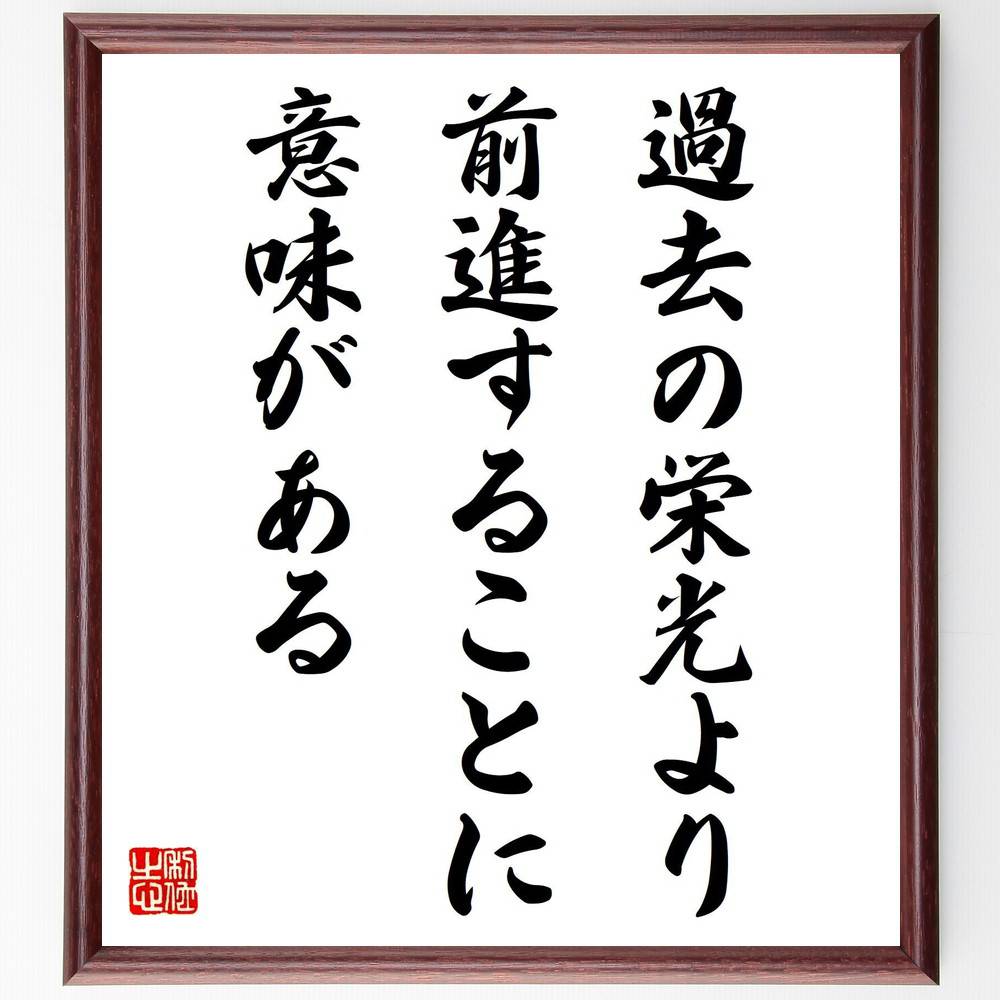 過去の栄光より
前進することに
意味がある